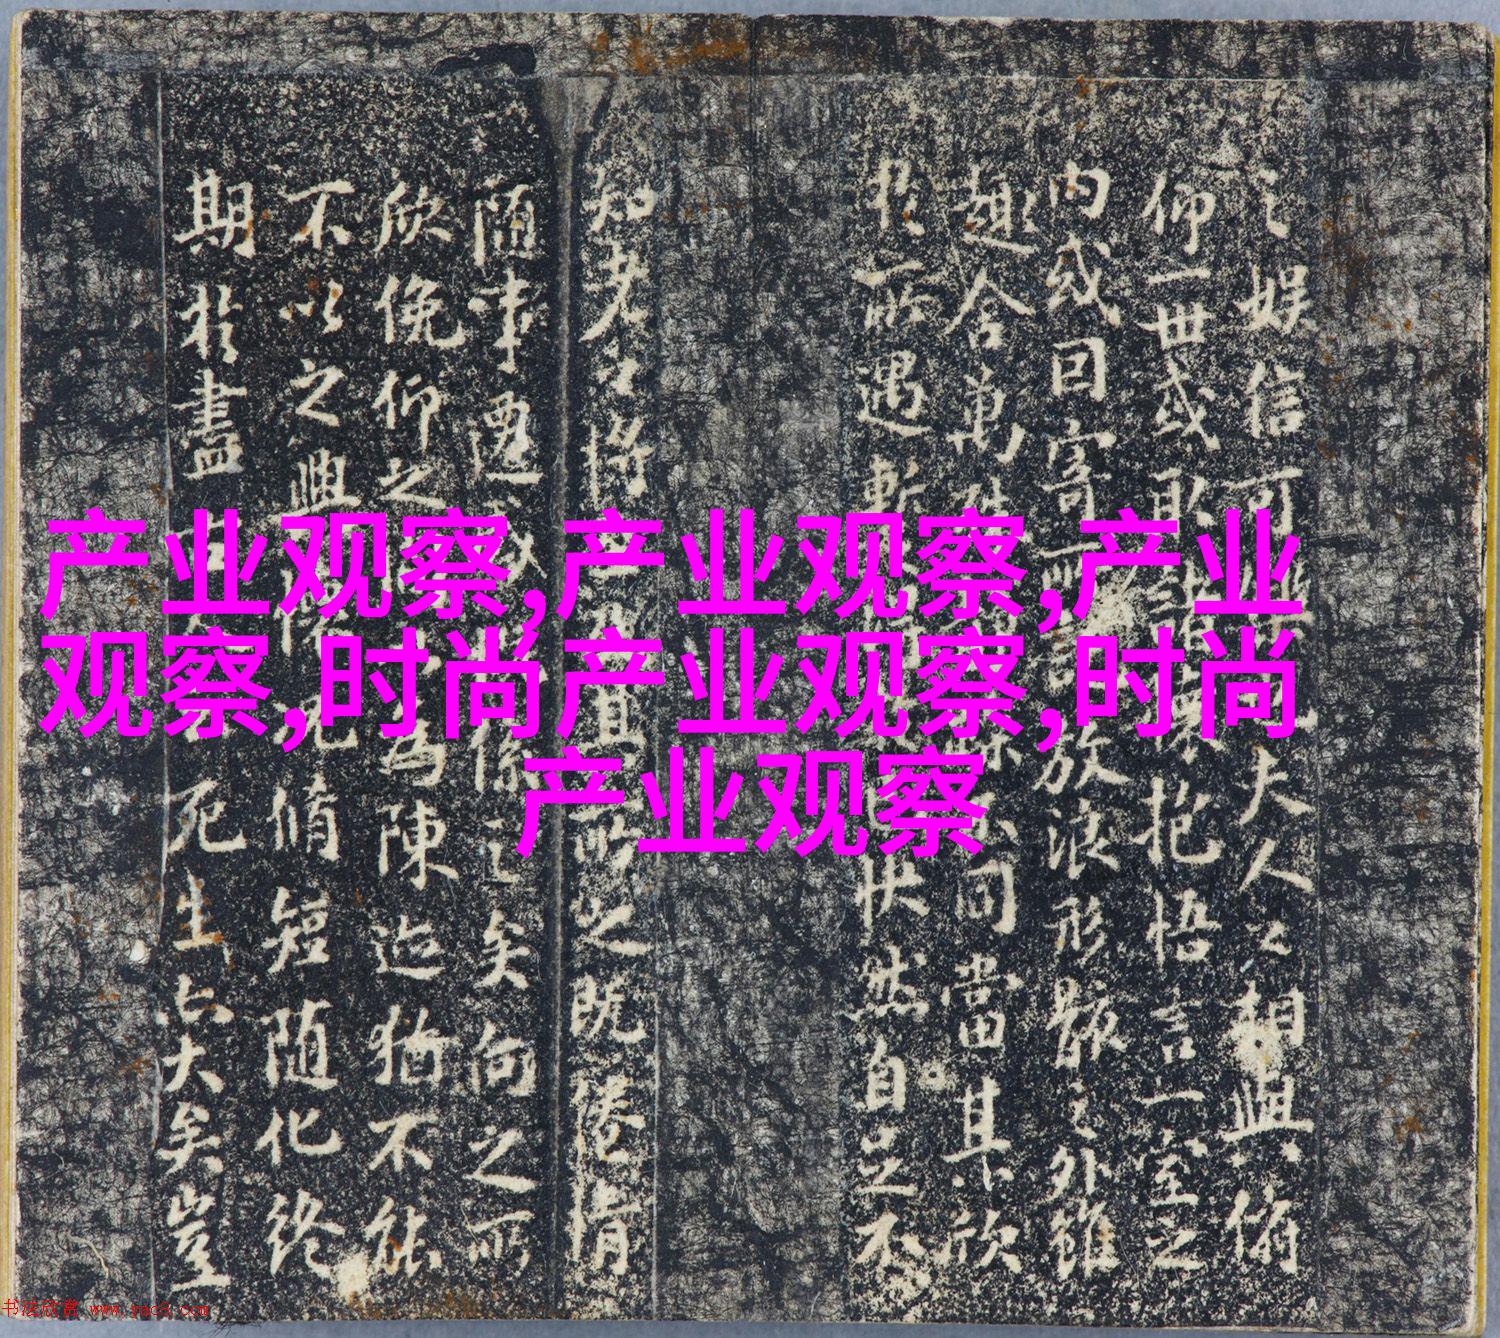 之娱信可夫人之相與俯
仰一世或取諸抱悟言一室之
内或因寄所託放浪形骸之外雖
趣舍萬不同當其欣
於所遇暫快然自足不
知老之將至其所之既倦情
随事遷感係之矣向之所
欣俛仰之為陳迹猶不能
不以之興懷况脩短随化終
期於盡古死生亦大矣豈
产业观察,产业观察,产业
观察,时尚产业观察,时尚
产业观察
书法欣赏 www.yac8.com